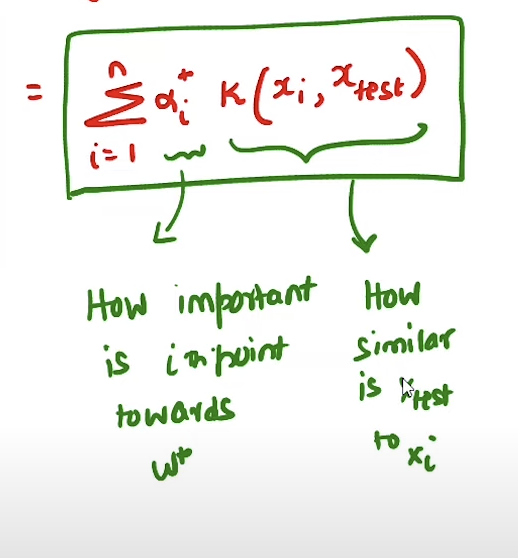 = n
Σ αᵢ* K(xᵢ, xtest)
i=1
How important
is iᵗʰ point
towards
w*
How
similar
is xtest
to xᵢ